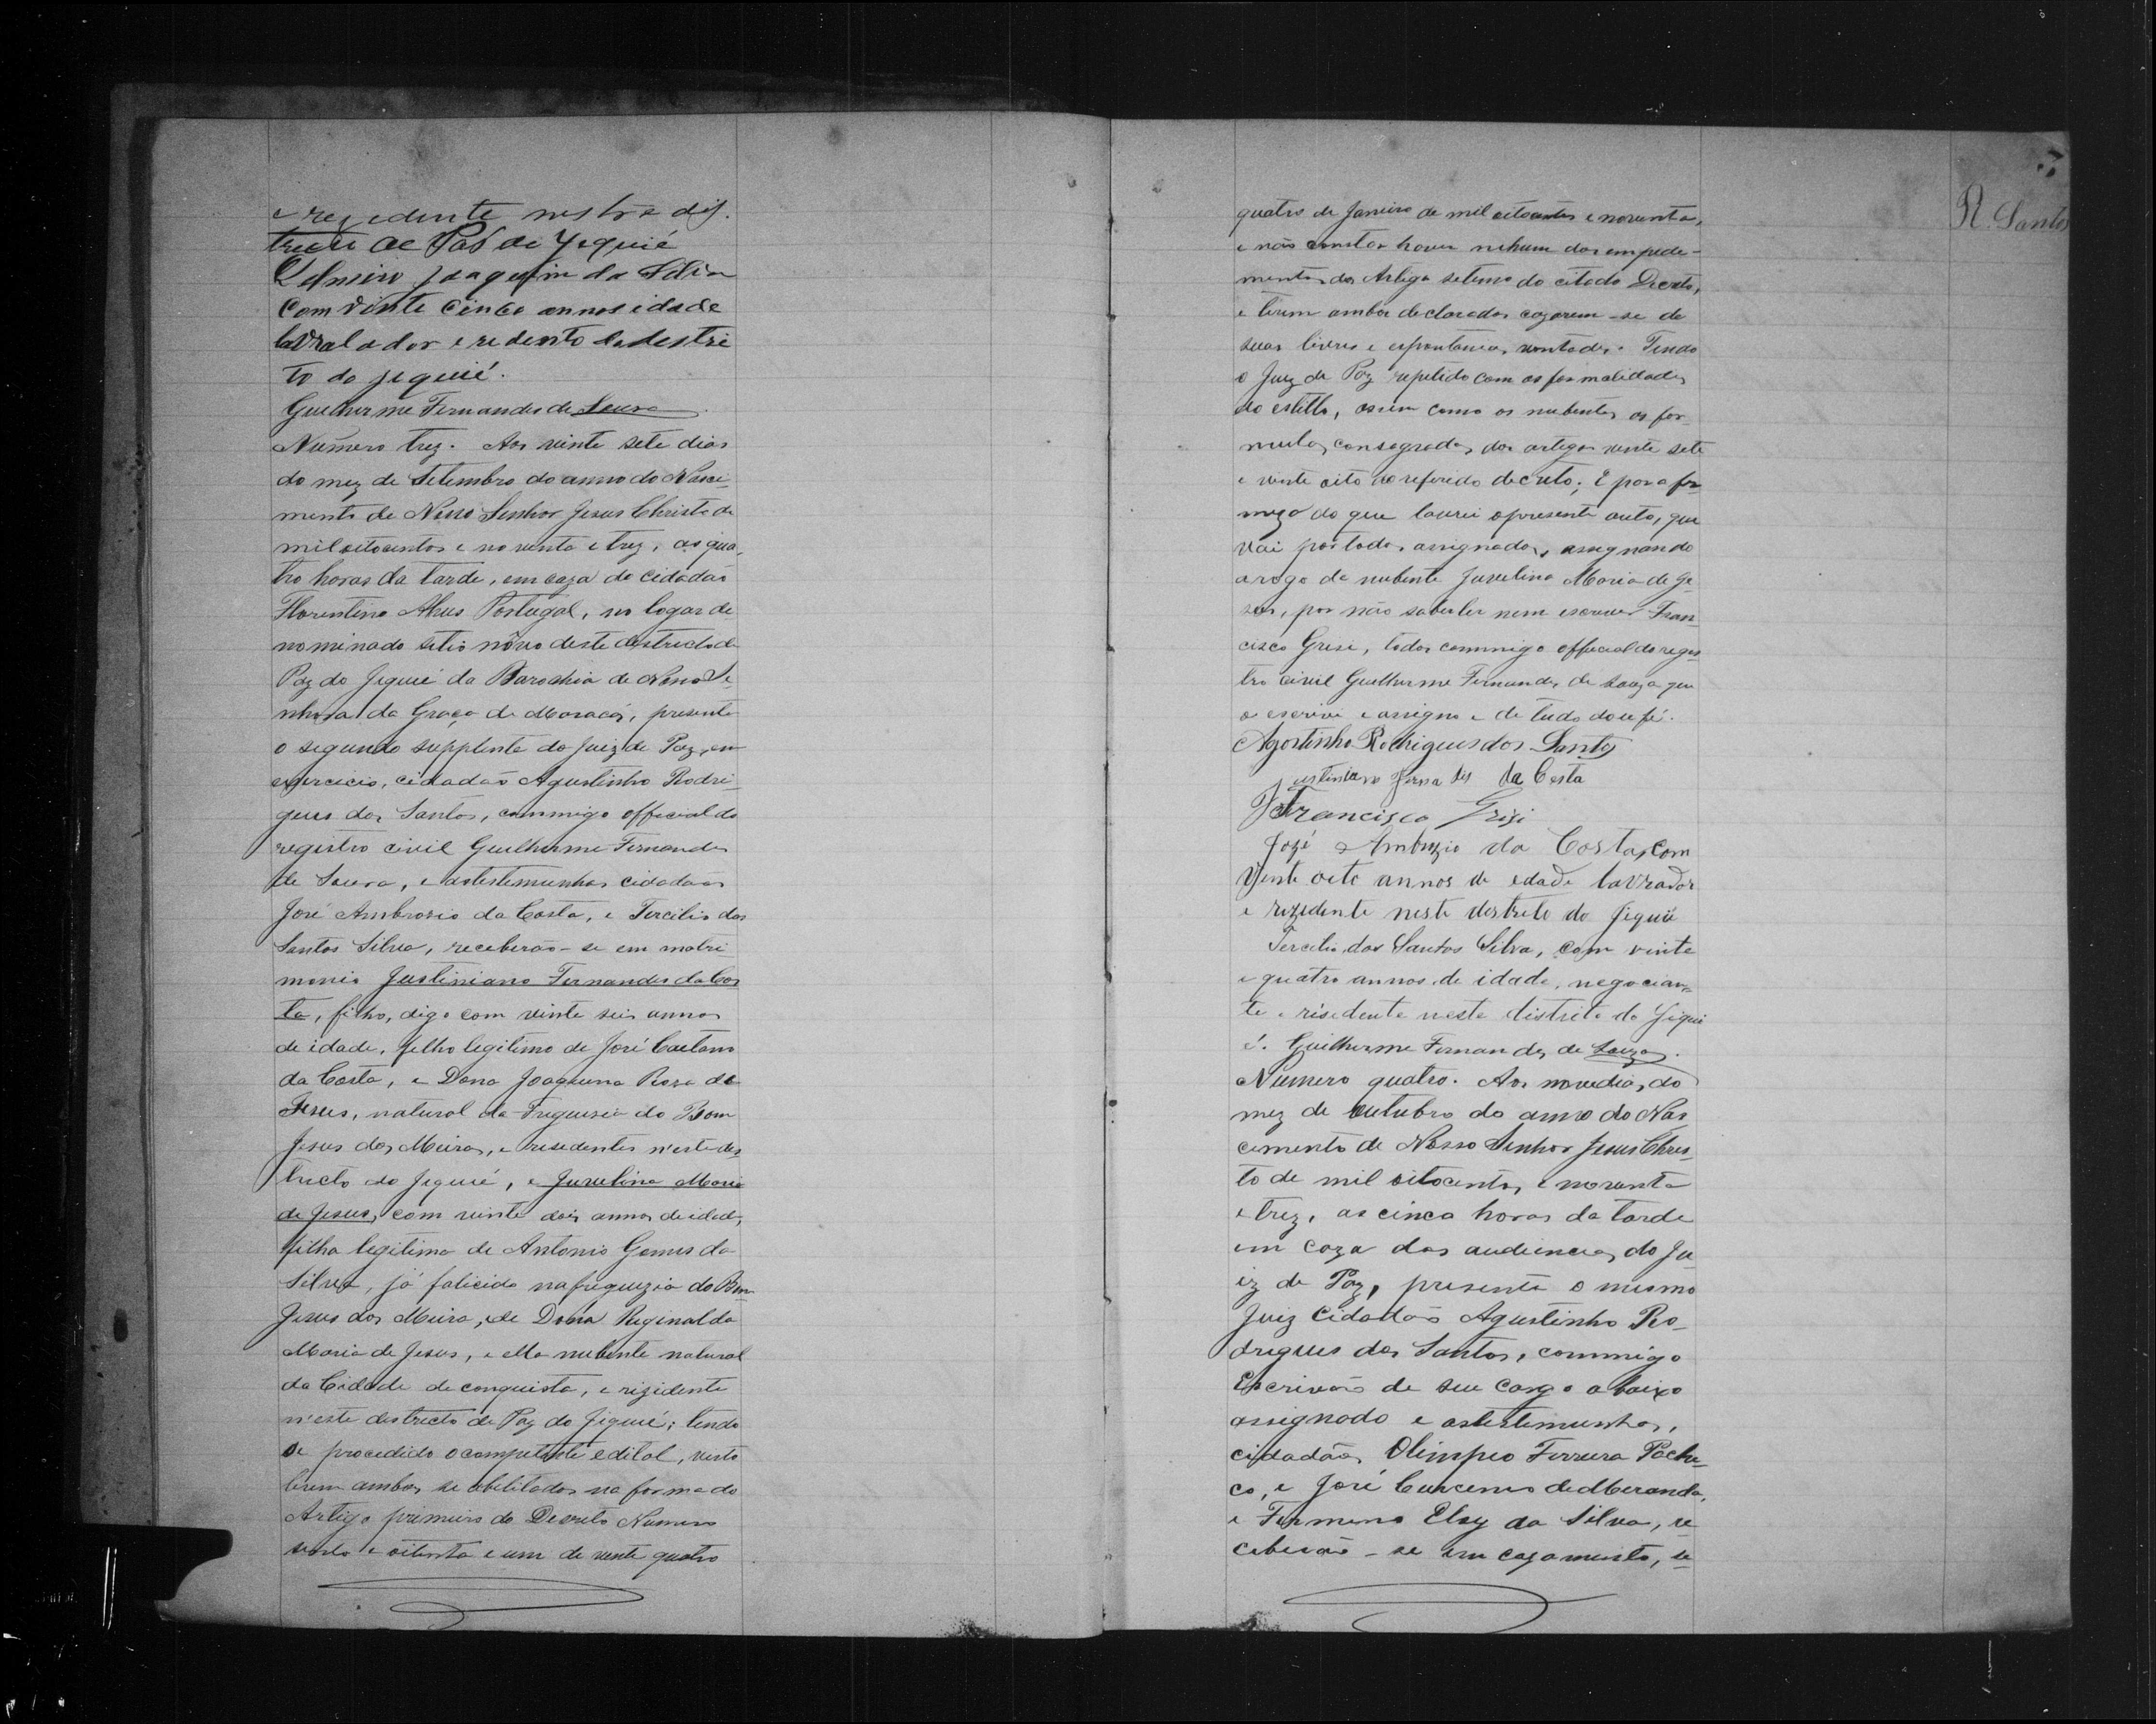 e rezedente neste dis.
tricto de Pas de Jequié
Joaquim da Silva
com vinte cinco annos idade
lavralador e redento dadestri
to do jequié.
Guilherme Fernandes de Souza
Numero trez. Aos vinte sete dias
do mez de Setembro do anno do Nasci-
mento de Nosso Senhor Jesus Christo de
mil oitocentos e noventa e trez, as qua-
tro horas da tarde, em caza do cidadão
Florentino Alves Portugal, no logar de
nominado sitio nôvo deste destricto de
Paz do Jequié da Parochia de Nossa Se-
nhora da Graça de Maracás, presente
o segundo supplente do Juiz de Paz, em
exercicio, cidadão Agustinho Rodri-
gues dos Santos, commigo official do
registro civil Guilherme Fernandes
de Souza, e as testemunhas cidadãos
José Ambrosio da Costa, e Tercilio dos
Santos Silva, receberão-se em matri
monio Justiniano Fernandes da Cos
ta, filho, digo com vinte seis annos
de idade, filho legitimo de José Caetano
da Costa, e Dona Joaquina Roza de
Jesus, natural da Freguesia do Bom
Jesus dos Meiras, e residentes n'este des
tricto do Jequié, e Juvelina Maria
de Jesus, com vinte dois annos de idade,
filha legitima de Antonio Gomes da
Silva, já falicido na freguezia do Bom
Jesus dos Meira, e de Dona Reginalda
Maria de Jesus, e ella nubente natural
da Cidade de conquista, e rizidente
n'este districto de Paz do Jiquié; tendo
se procedido o competente edital, visto
terem ambos se abilitados na forma do
Artigo primeiro do Decreto Numero
sento e oitenta e um de vente quatro
quatro de Janeiro de mil oitocentos e noventa,
e não constar haver nehum dos empede-
mentos do Artigo setimo do citado Decreto,
e terem ambos declarados cazarem-se de
suas livres e espontanias vontades. Tendo
o Juiz de Paz repetido com as formalidades
do estillo, assim como os nubentes as for-
mulas consagradas dos artigos vente sete
e vinte oito do referido decreto; E para for
meza do que lavrei o presente auto, que
vai por todos assignados, assegnando
arogo da nubente Juvelina Maria de Je
sus, por não saber ler nem escrever Fran-
cisco Grise, todos commigo official do regis
tro civil Guilherme Fernandes de Souza que
o escrivi e assigno e de tudo dou fé.
Agostinho Rodrigues dos Santos
Justiniano Ferna des da Costa
Francisco Grisi
Jozé Ambrozio da Costa, com
Vente oito annos de edade lavrador
e rezidente neste destreto do Jiquié
Tercilio dos Santos Silva, com vinte
e quatro annos de idade, negocian-
te e risedente neste distrito do Jiqui
é. Guilherme Fernandes de Souza.
Numero quatro. Aos nove dias do
mez de Outubro do anno do Nas
cemento de Nosso Senhor Jesus Chris-
to de mil oitocentos e noventa
e trez, as cinco horas da tarde
em caza das audiencias do Ju
iz de Paz, presente o mesmo
Juiz Cidadão Agustinho Ro-
drigues dos Santos, commigo
Escrivão de seu cargo abaixo
assignado e as testemunhas,
cidadãos Olimpio Ferreira Pache-
co, e José de Meranda,
e Fermeno Eloy da Silva, re
ceberão-se em cazamento, se
R. Santos